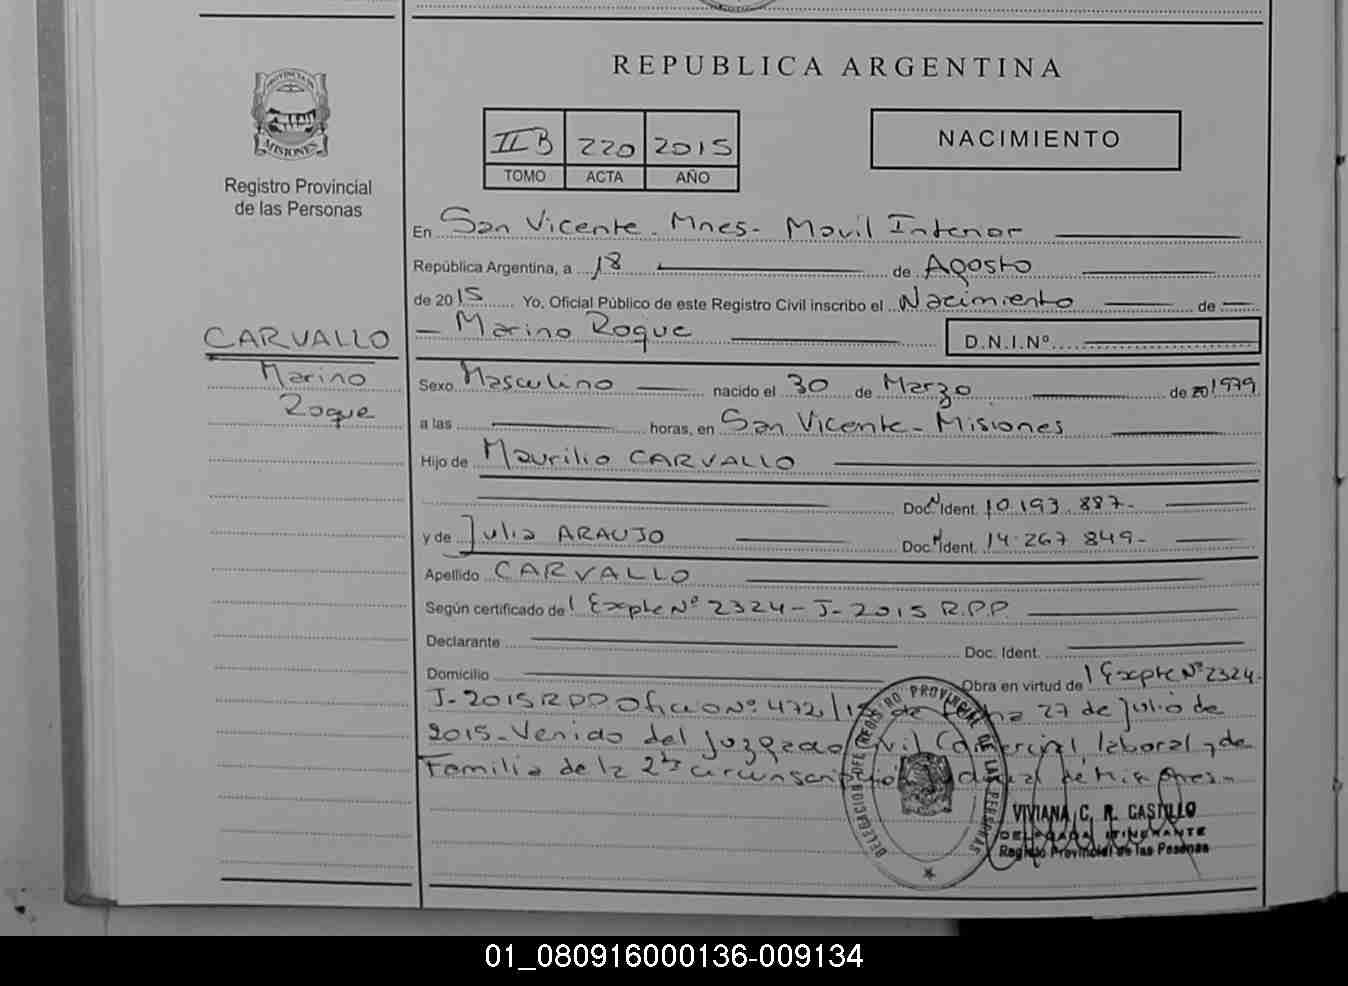 REPUBLICA ARGENTINA
PROVINCIA DE
MISIONES
Registro Provincial
de las Personas
II B 220 2015
TOMO ACTA AÑO
NACIMIENTO
En San Vicente - Mnes - Movil Interior
República Argentina, a 18 de Agosto
de 2015 Yo, Oficial Público de este Registro Civil inscribo el Nacimiento de
Marino Roque D.N.I.Nº
CARVALLO
Marino
Roque
Sexo Masculino nacido el 30 de Marzo de 20 1979
a las horas, en San Vicente - Misiones
Hijo de Maurilio CARVALLO
Doc. N Ident. 10.193.887-
y de Julia ARAUJO Doc. N Ident. 14.267.849-
Apellido CARVALLO
Según certificado de Expte Nº 2324-J-2015 R.P.P.
Declarante Doc. Ident.
Domicilio Obra en virtud de Expte Nº 2324-
J-2015 R.P.P. Oficio Nº 472/15 de fecha 27 de Julio de
2015- Venido del Juzgado Civil Comercial, laboral y de
Familia de la 2da circunscripción
DELEGACION DEL REGISTRO PROVINCIAL DE LAS PERSONAS
VIVIANA C. R. CASTILLO
DELEGADA ITINERANTE
Registro Provincial de las Pesonas
01_080916000136-009134